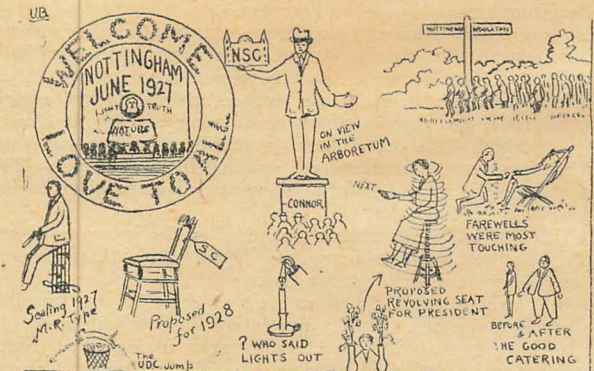 U.B.
WELCOME
LOVE TO ALL
NOTTINGHAM
JUNE 1927
LIGHT TRUTH
NATURE
NSC
ON VIEW
IN THE
ARBORETUM
CONNOR
NOTTINGHAM WOOLATON
NEXT
FAREWELLS
WERE MOST
TOUCHING
Seating 1927
M.R. Type
SC
Proposed
for 1928
? WHO SAID
LIGHTS OUT
PROPOSED
REVOLVING SEAT
FOR PRESIDENT
BEFORE
& AFTER
THE GOOD
CATERING
The
U.D.C. Jump